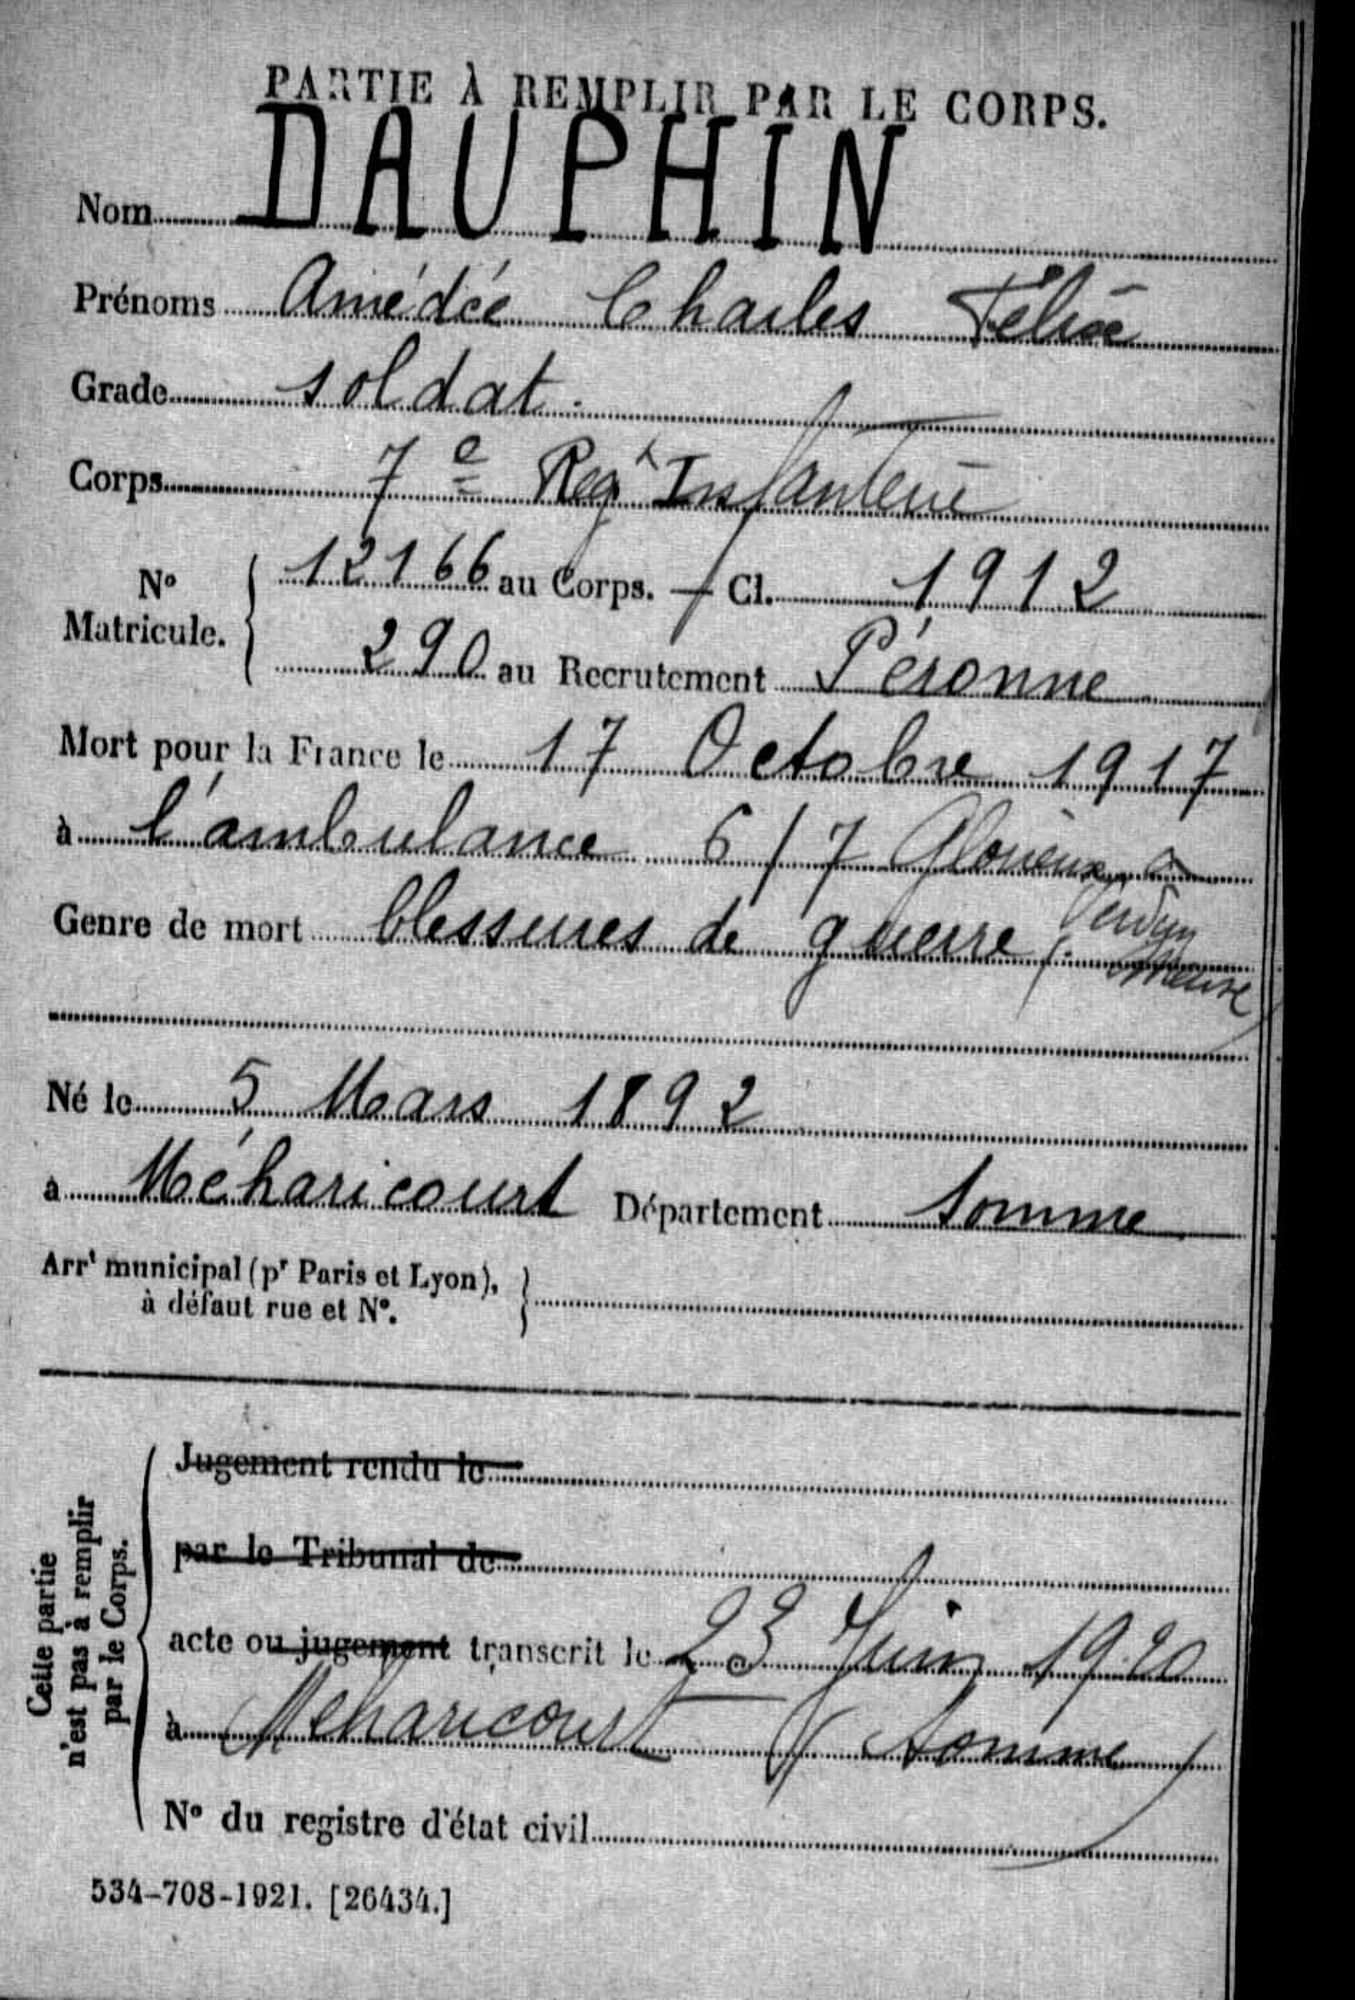 PARTIE À REMPLIR PAR LE CORPS.
Nom DAUPHIN
Prénoms Amédée Charles Félix
Grade soldat.
Corps 7e Regt Infanterie
No Matricule. { 12166 au Corps. — Cl. 1912
290 au Recrutement Péronne
Mort pour la France le 17 Octobre 1917
à l'ambulance 6/7 Glorieux
Genre de mort blessures de guerre (Verdun
Meuse)
Né le 5 Mars 1892
à Méharicourt Département Somme
Arrt municipal (pr Paris et Lyon),
à défaut rue et No.
Cette partie
n'est pas à remplir
par le Corps.
Jugement rendu le
par le Tribunal de
acte ou jugement transcrit le 23 Juin 1920
à Meharicourt (Somme)
No du registre d'état civil
534-708-1921. [26434.]